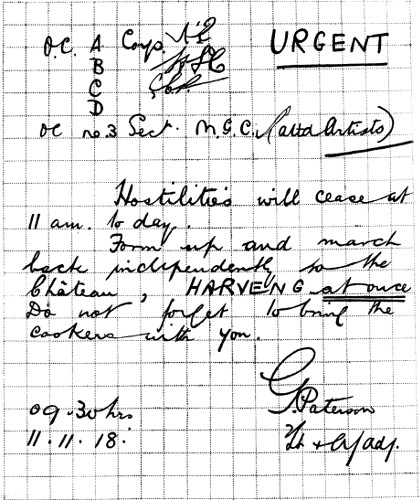 O.C. A Corps. URGENT
B
C
D
OC no. 3 Sect. M.G.C. (attd Artists)
Hostilities will cease at
11 am. to day.
Form up and march
back independently to the
Château, HARVENG at once
Do not forget to bring the
cookers with you.
G. Paterson
09.30 hrs
11.11.18. Lt & A/adj.